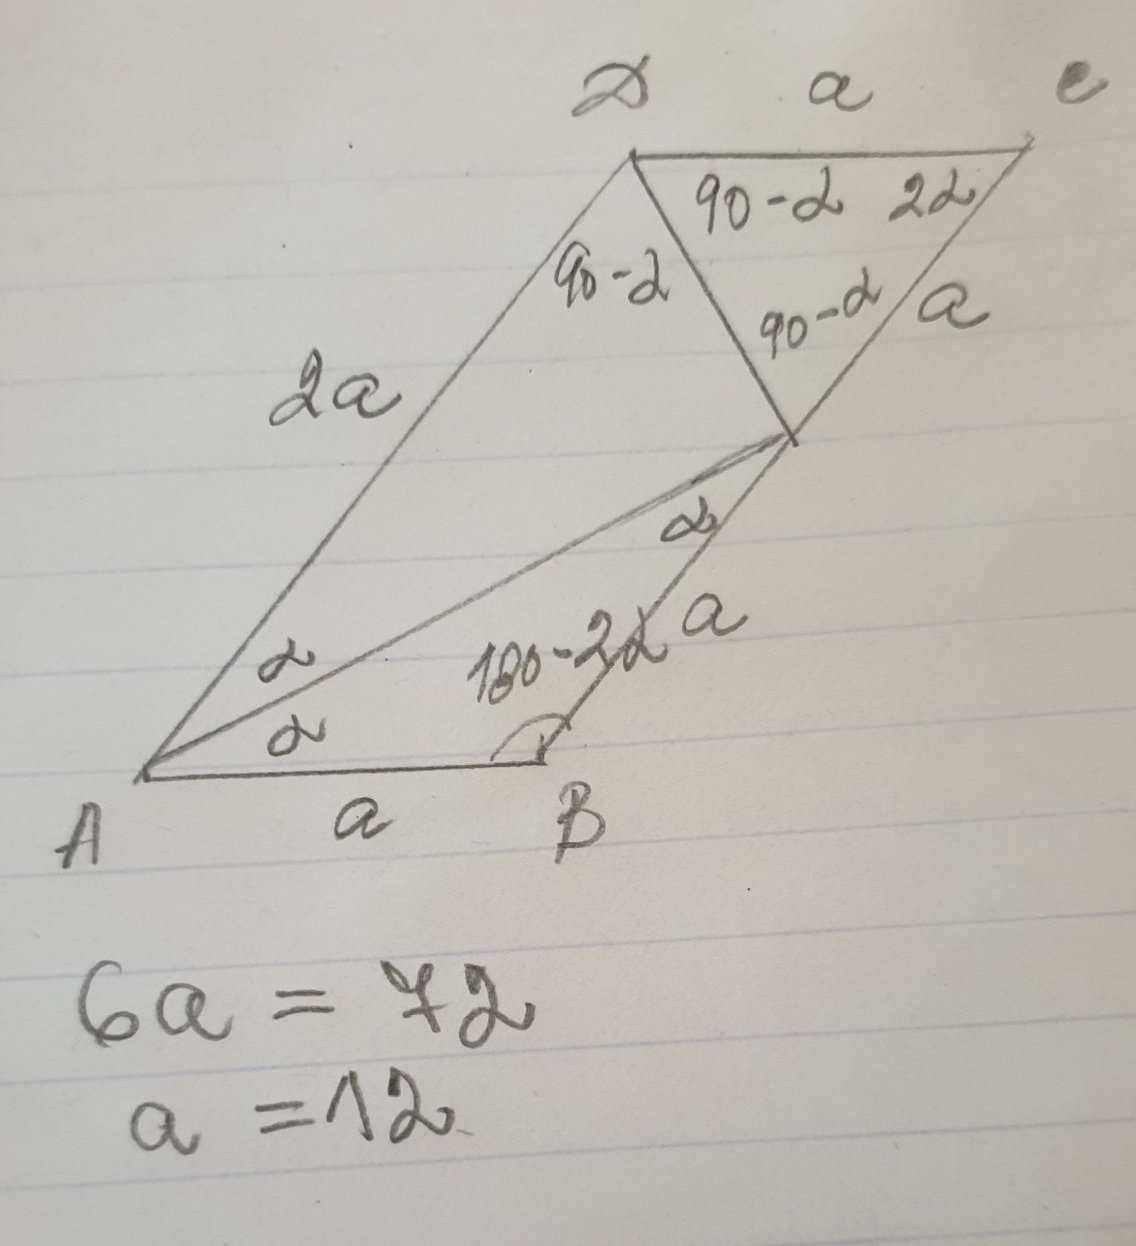 D a C
90-α 2α
90-α
90-α a
2a
α
a
180-2α
α
α
A a B
6a = 72
a = 12